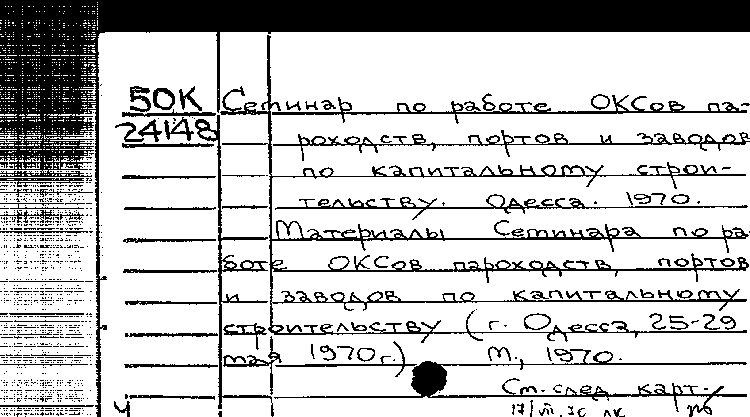 50К Семинар по работе ОКСов па-
24148 роходств, портов и заводов
по капитальному строи-
тельству. Одесса. 1970.
Материалы Семинара по ра-
боте ОКСов пароходств, портов
и заводов по капитальному
строительству (г. Одесса, 25-29
мая 1970г.) М., 1970.
См. след. карт.